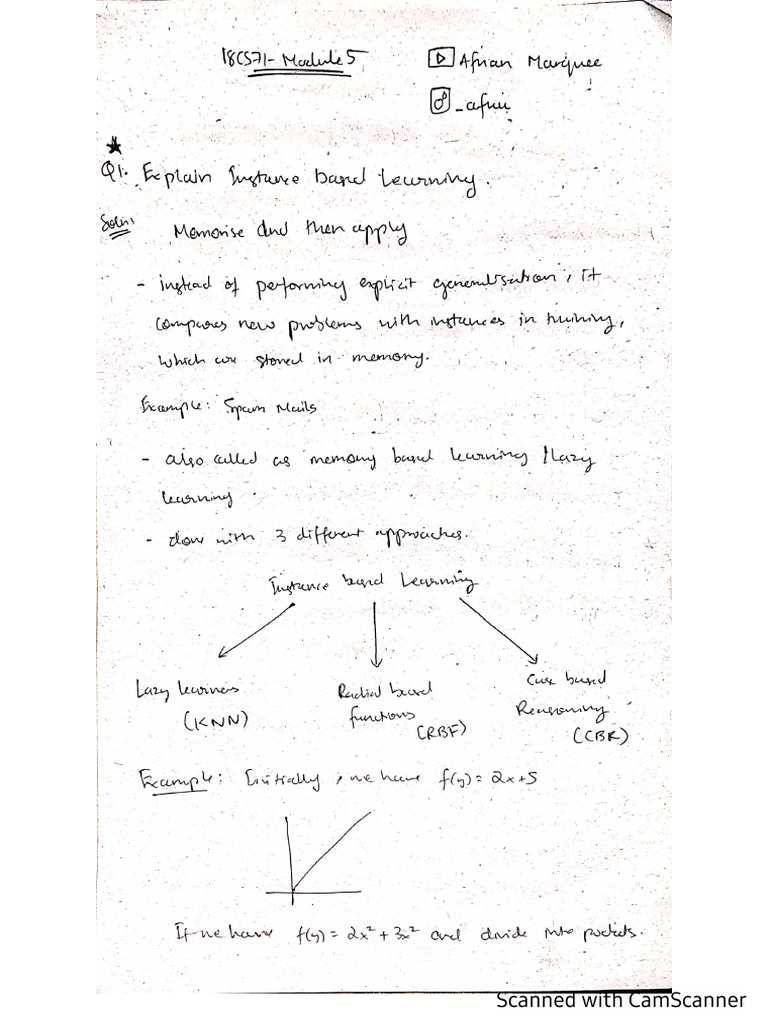 18CS71- Module 5
Afnan Marquee
_afnu
Q1. Explain Instance based Learning.
Soln:
Memorise and then apply
- instead of performing explicit generalisation, it
compares new problems with instances in training,
which are stored in memory.
Example: Spam Mails
- also called as memory based learning / lazy
learning.
- done with 3 different approaches.
Instance based Learning
Lazy learners
(KNN)
Radial based
functions
(RBF)
Case based
Reasoning
(CBR)
Example: Initially, we have f(y) = 2x+5
If we have f(y) = 2x² + 3x² and divide into pockets.
Scanned with CamScanner